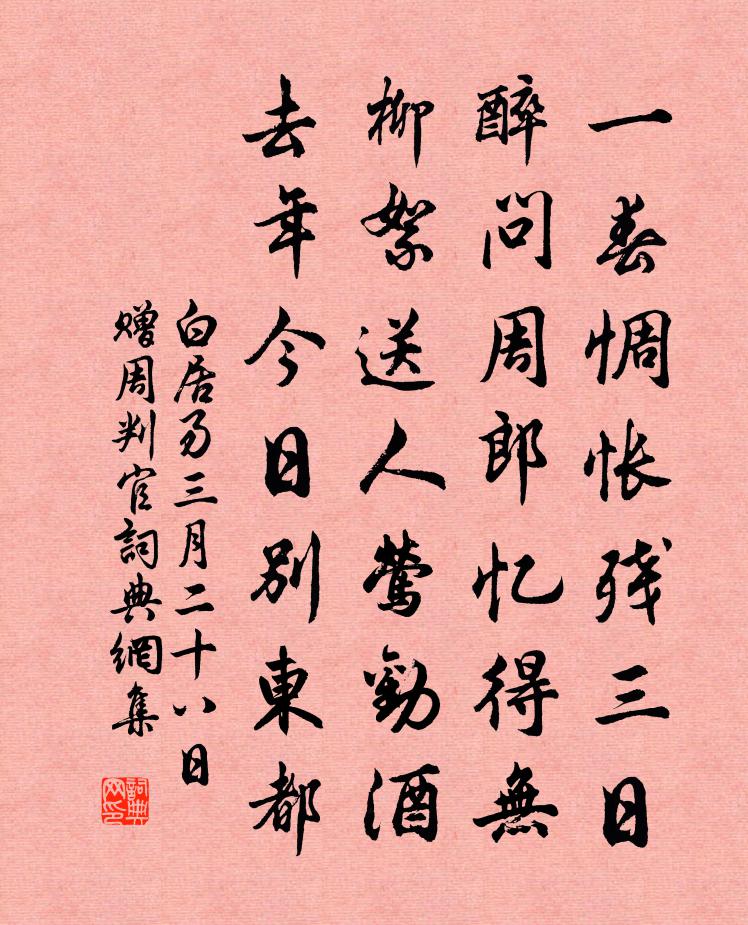 一春惆怅残三日
醉问周郎忆得無
柳絮送人莺勸酒
去年今日别東都
白居易三月二十八日
赠周判官詞典網集
詞典网印